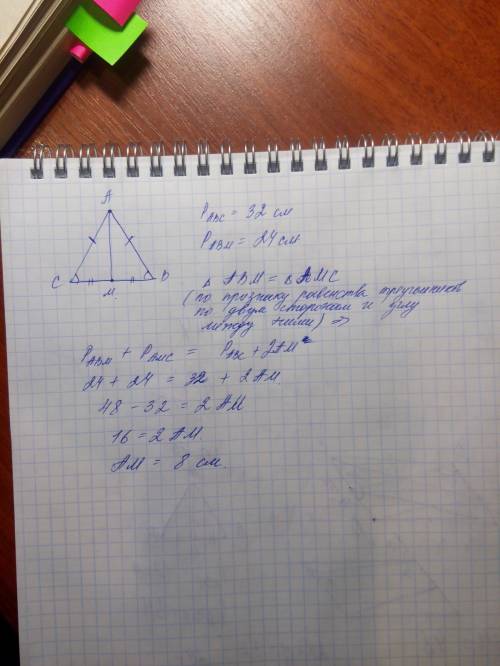 A
C
B
M.
P ABC = 32 см
P ABM = 24 см
Δ ABM = Δ AMC
(по признаку равенства треугольников
по двум сторонам и углу
между ними) ⇒
P ABM + P AMC = P ABC + 2AM
24 + 24 = 32 + 2AM.
48 - 32 = 2 AM
16 = 2 AM.
AM = 8 см.